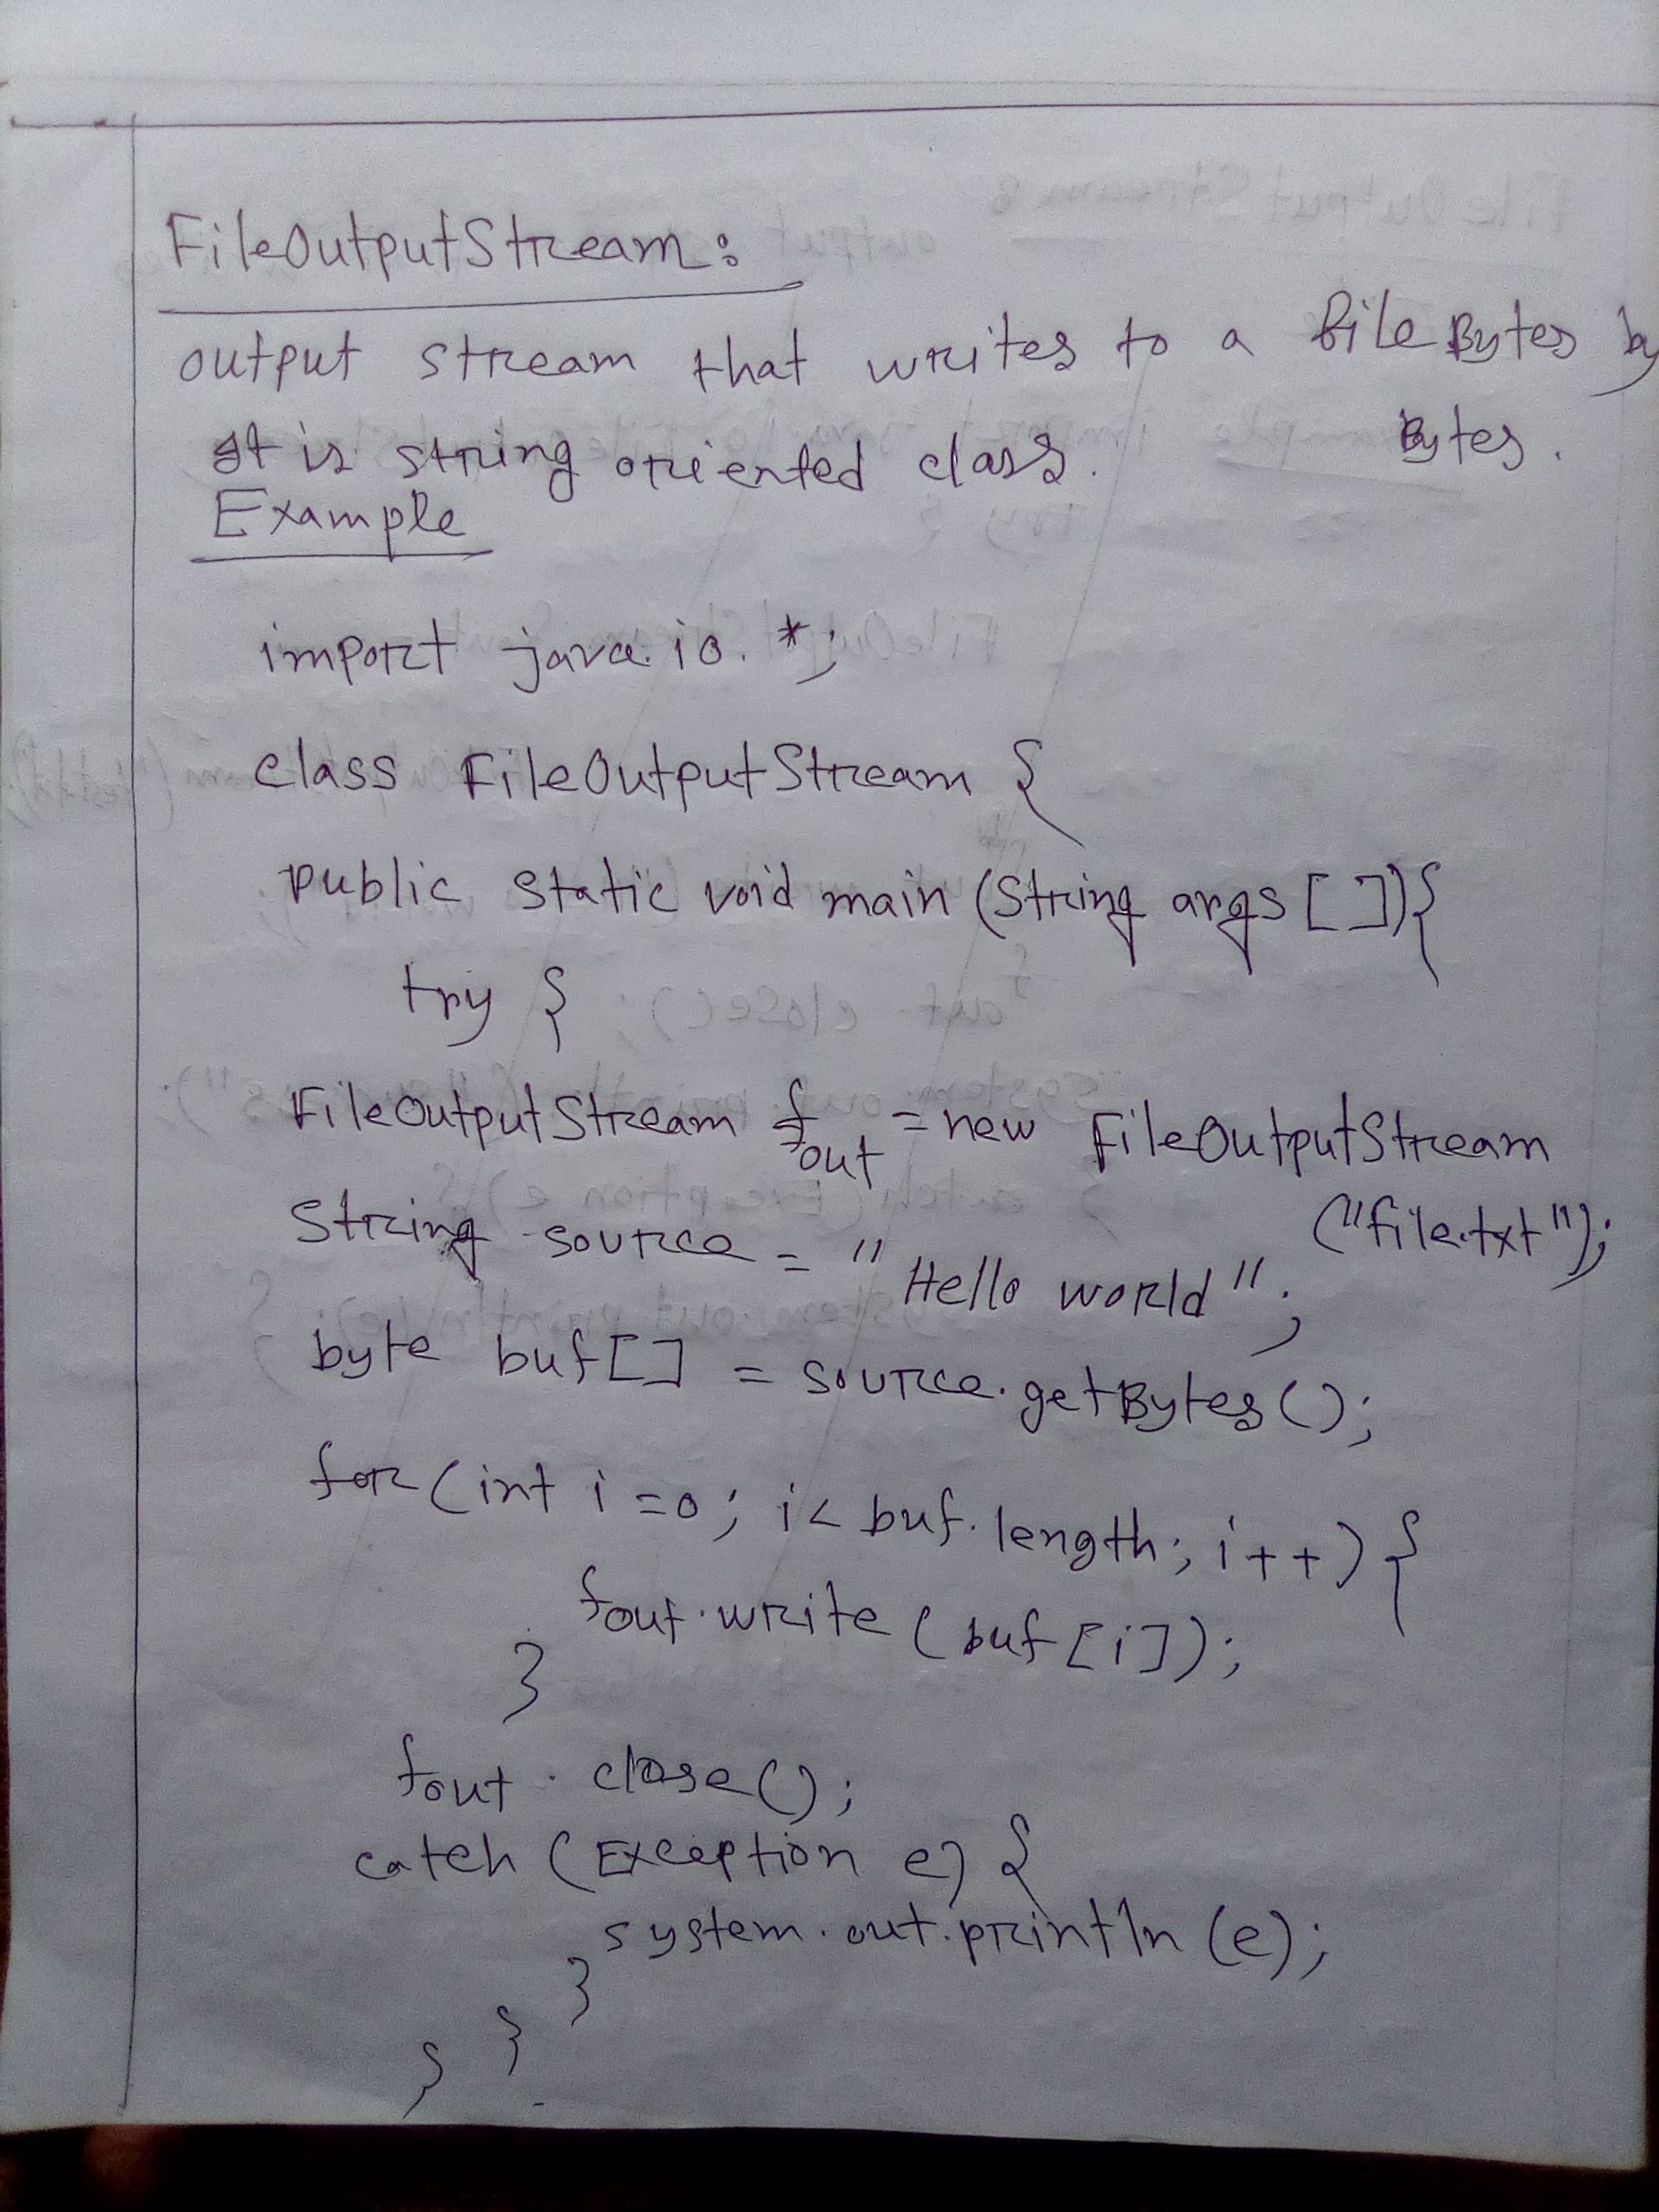 FileOutputStream:
output stream that writes to a file Bytes by
Bytes.
It is string oriented class.
Example
import java.io.*;
class FileOutputStream {
public static void main (String args []){
try {
FileOutputStream fout = new FileOutputStream
("file.txt");
String source = "Hello world";
byte buf[] = source.getBytes();
for (int i=0; i< buf.length; i++) {
fout.write (buf [i]);
}
fout.close();
catch (Exception e) {
system.out.println (e);
}
}
}